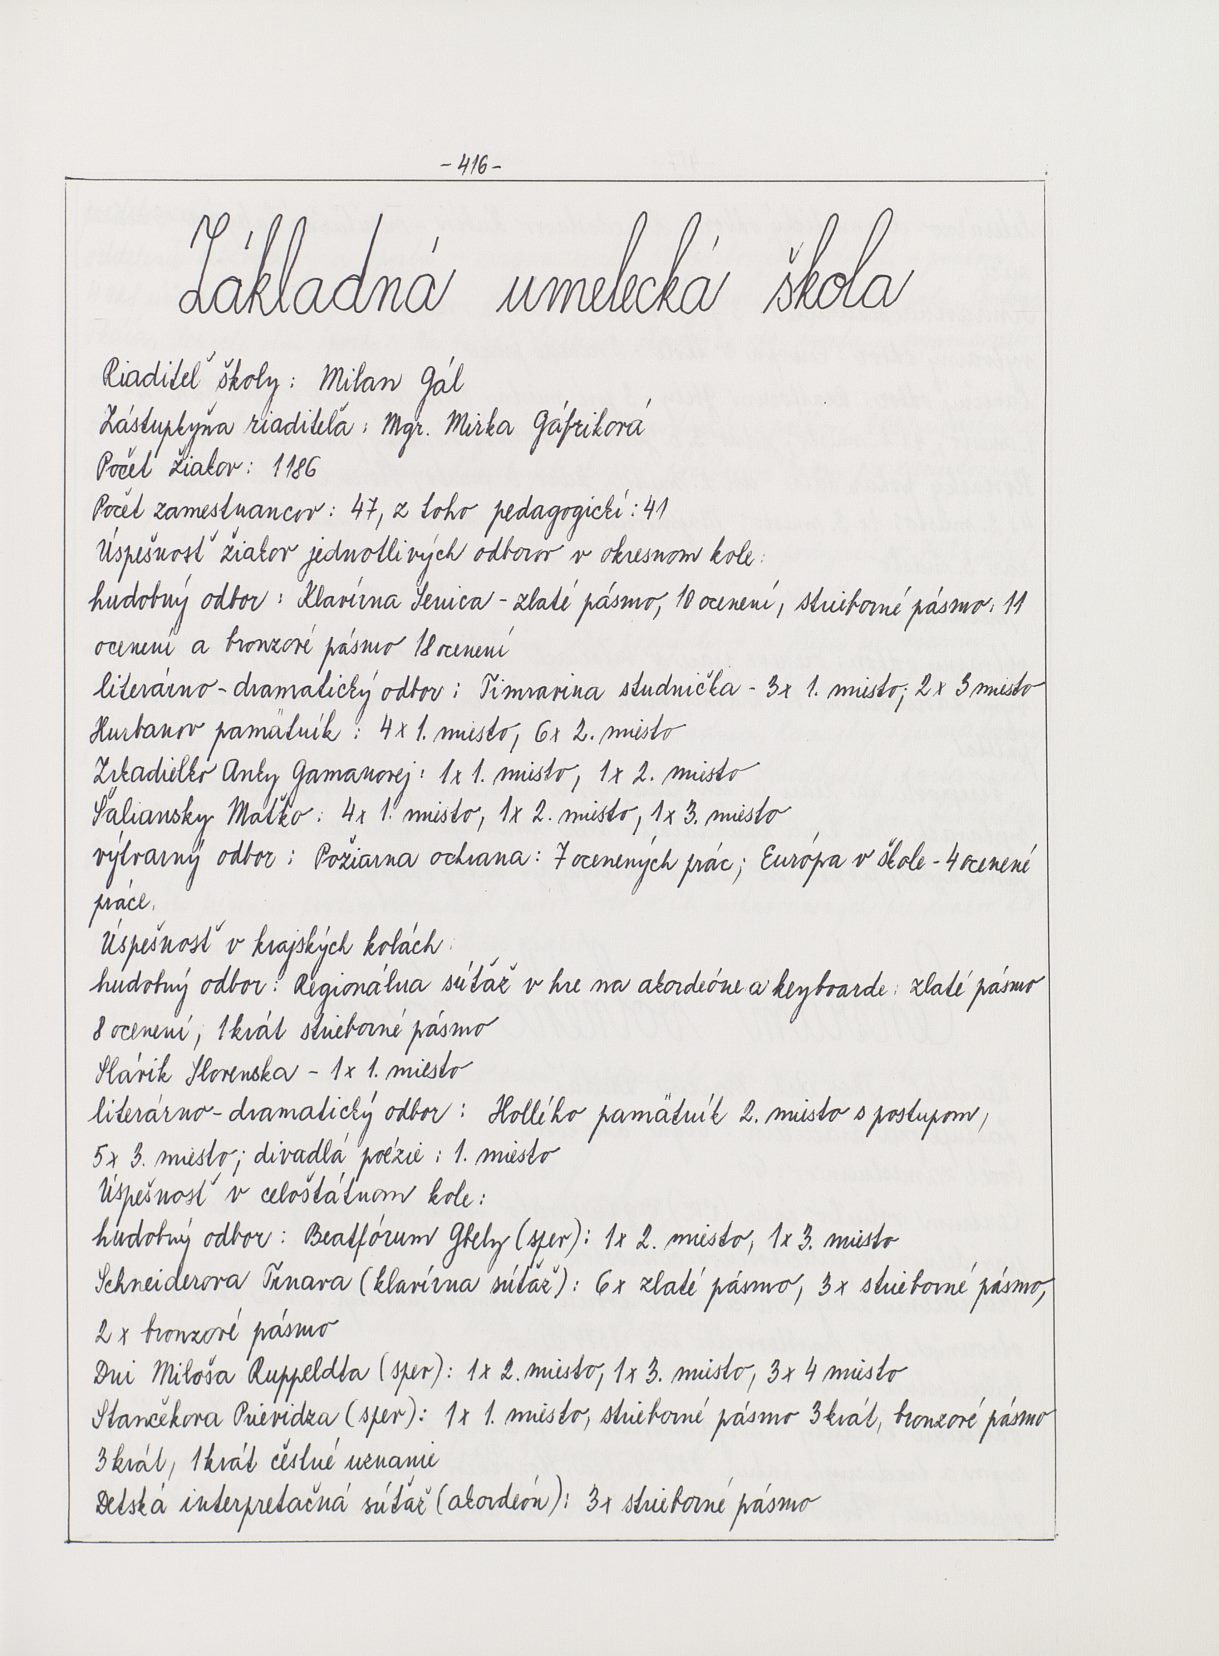 - 416 -
Základná umelecká škola
Riaditeľ školy: Milan Gál
Zástupkyňa riaditeľa: Mgr. Mirka Gáfriková
Počet žiakov: 1186
Počet zamestnancov: 47, z toho pedagogickí: 41
Úspešnosť žiakov jednotlivých odborov v okresnom kole:
hudobný odbor: Klavírna Senica - zlaté pásmo, 10 ocenení, strieborné pásmo: 11
ocenení a bronzové pásmo 18 ocenení
literárno-dramatický odbor: Timravina studnička - 3x 1. miesto; 2x 3 miesto
Hurbanov pamätník: 4x 1. miesto, 6x 2. miesto
Zrkadielko Anky Gamanovej: 1x 1. miesto, 1x 2. miesto
Šaliansky Maťko: 4x 1. miesto, 1x 2. miesto, 1x 3. miesto
výtvarný odbor: Požiarna ochrana: 7 ocenených prác; Európa v škole - 4 ocenené
práce.
Úspešnosť v krajských kolách:
hudobný odbor: Regionálna súťaž v hre na akordeóne a keyboarde: zlaté pásmo
8 ocenení, 1 krát strieborné pásmo
Slávik Slovenska - 1x 1. miesto
literárno-dramatický odbor: Hollého pamätník 2. miesto s postupom,
5x 3. miesto; divadlá poézie: 1. miesto
Úspešnosť v celoštátnom kole:
hudobný odbor: Beatfórum Gbely (spev): 1x 2. miesto, 1x 3. miesto
Schneiderova Trnava (klavírna súťaž): 6x zlaté pásmo, 3x strieborné pásmo,
2x bronzové pásmo
Dni Miloša Ruppeldta (spev): 1x 2. miesto, 1x 3. miesto, 3x 4 miesto
Stančekova Prievidza (spev): 1x 1. miesto, strieborné pásmo 3 krát, bronzové pásmo
3 krát, 1 krát čestné uznanie
Detská interpretačná súťaž (akordeón): 3x strieborné pásmo